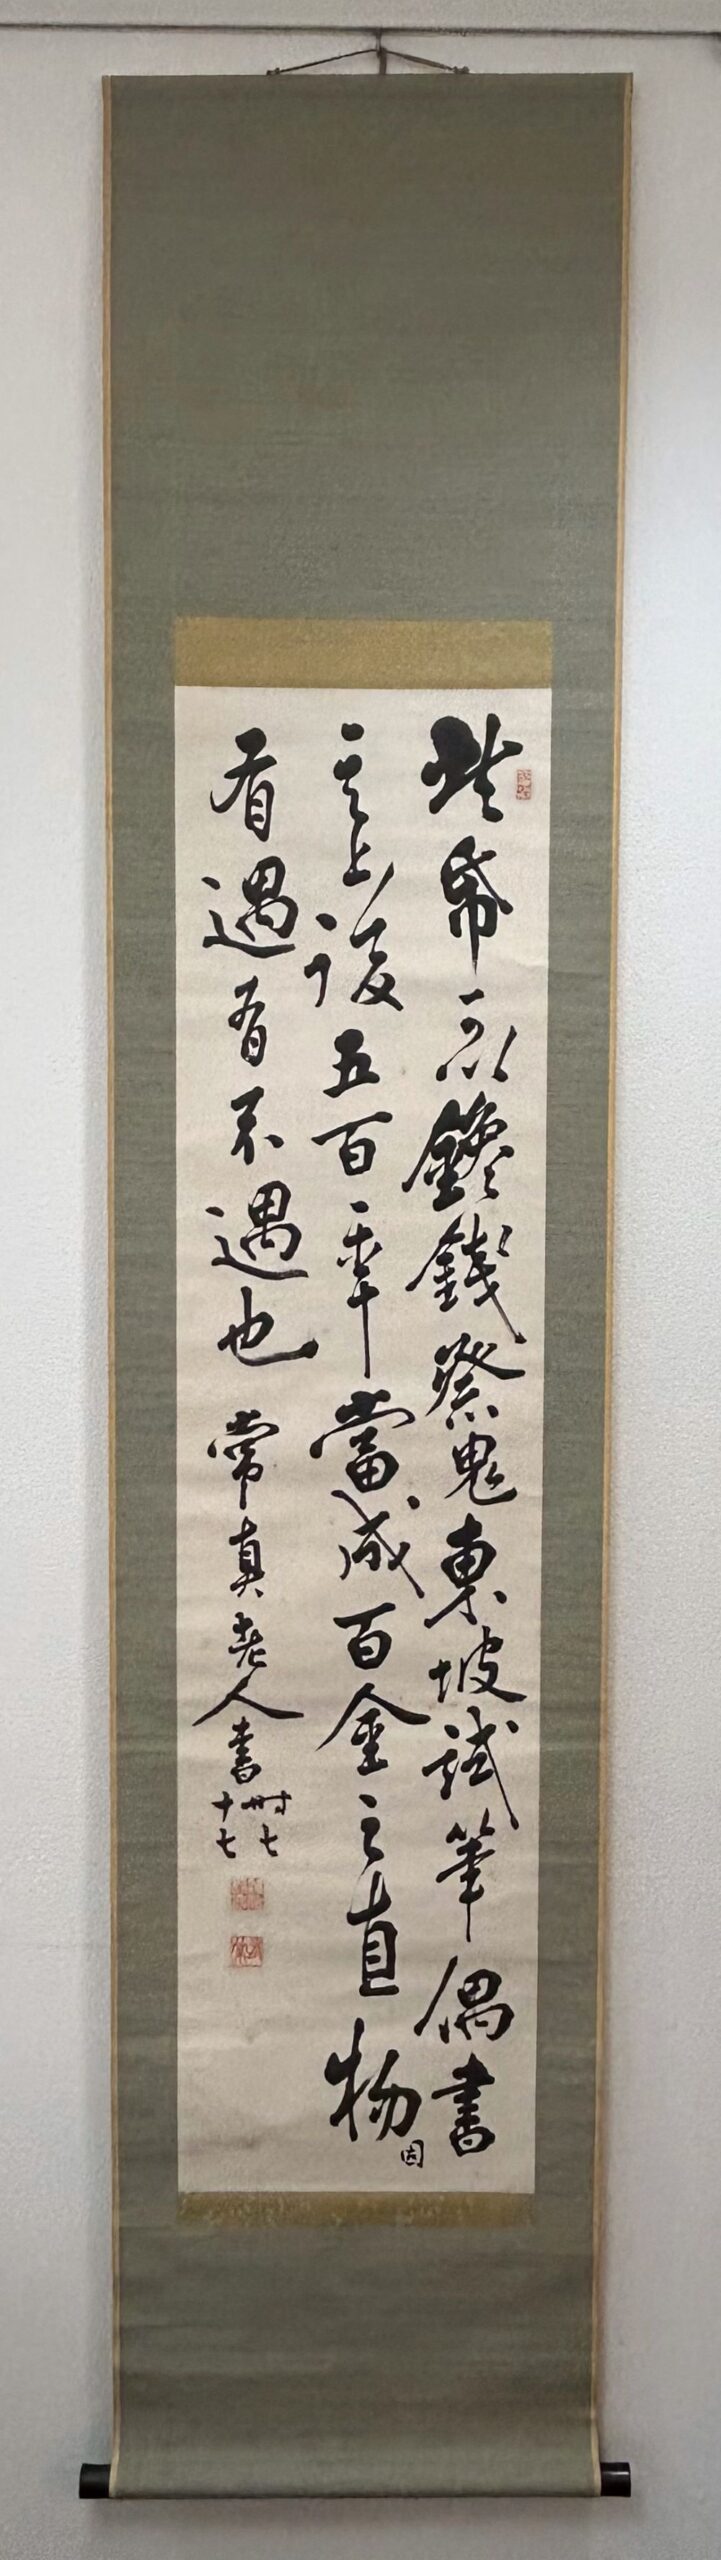 此帋可以鑱錢祭鬼東坡試筆偶書
其上後五百年當成百金之直物
因
有遇有不遇也 常真老人書
時七
十七